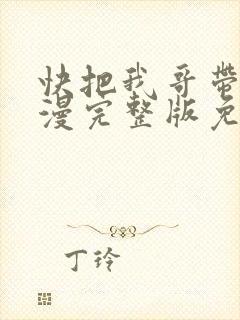 快把我哥带
漫完整版免
丁玲